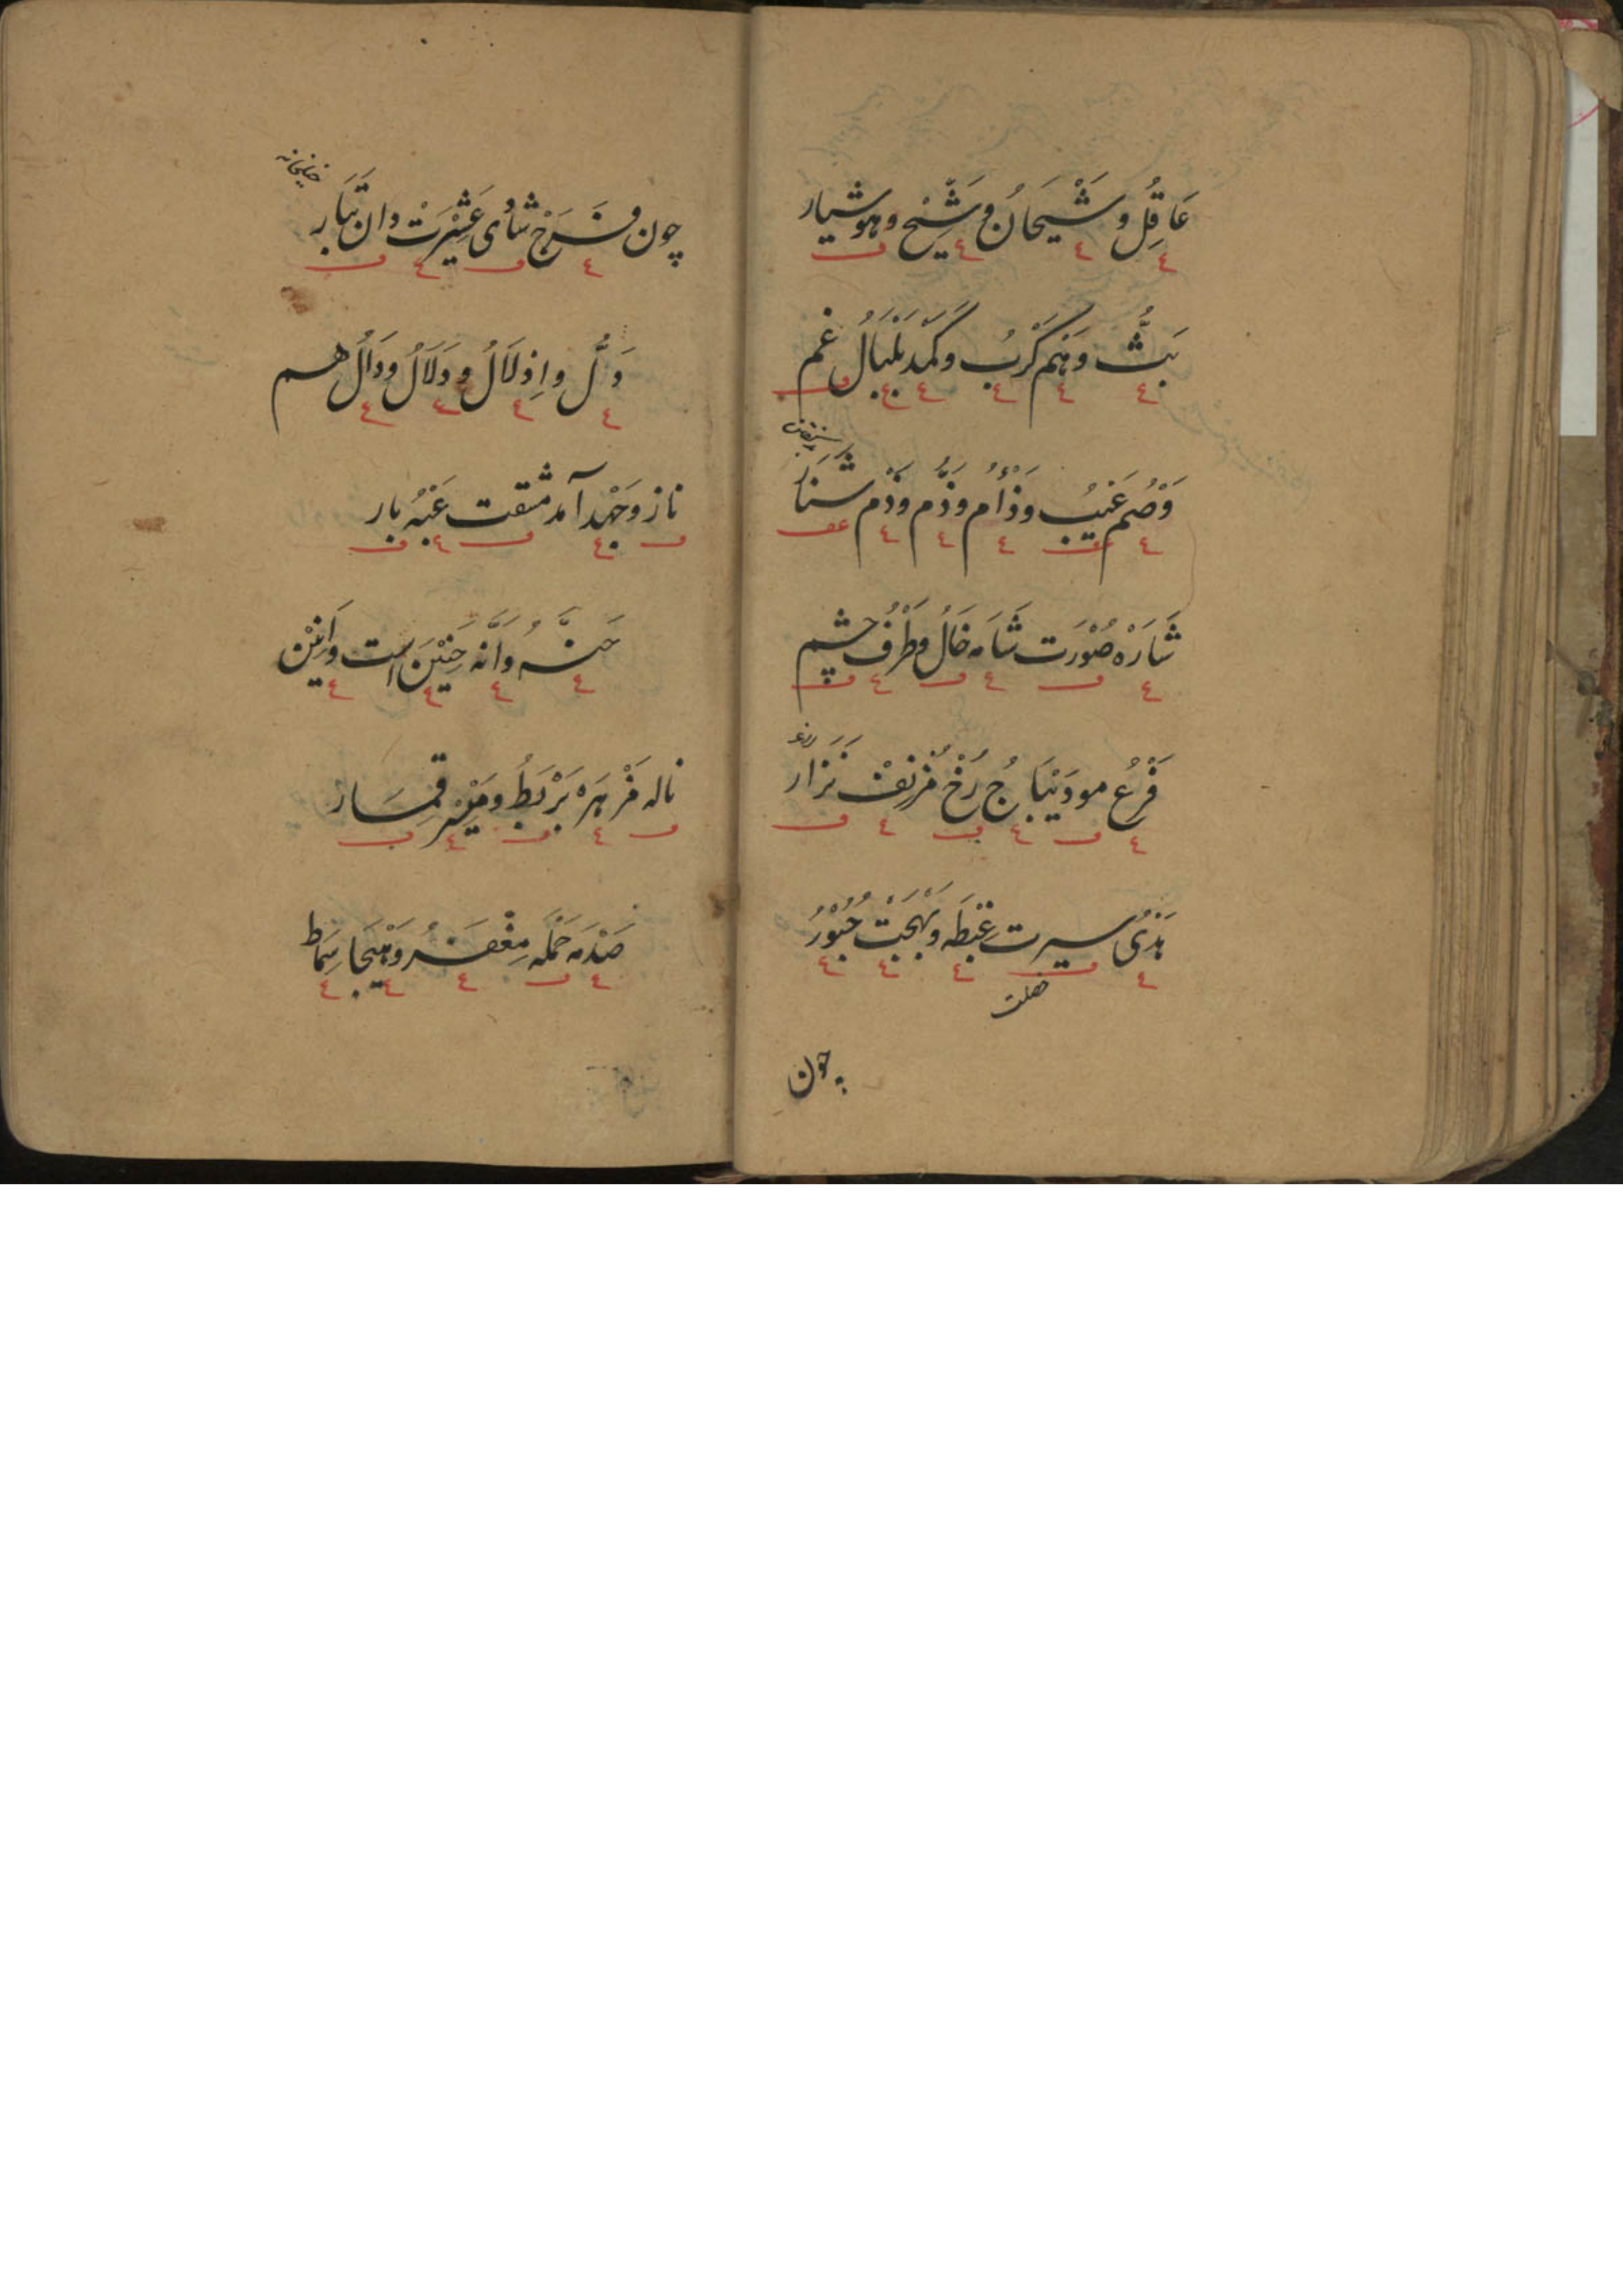 عَاقِلُ و شَيْحَانُ و شَيِّخ و هوشيار
بَثُّ وَهَم كَرْبُ و كَمَد بَلْبَالُ غم
وَصْم عَيْبُ و ذَأْم و ذَمّ و ذَم شَنَار
شَارَه صُوْرَت شَامه خَالُ و طَرْف چشم
فَرْعُ مو دَيْبَاجُ رُخْ نَزار
هَدْیُ سيرت غِبْطَه و بَهْجَتْ حُبُوْرُ
خصلت
چون
چون فَرَحْ شادی عَشِيْرَتْ دان تَبَار
دَلُّ و اِدْلَالُ و دَلَالُ و دَالُ هم
ناز و جَهْد آمد مشقت عَبْه بار
حَنَّه و اَنَّه حَنِيْنَ است و اَنِيْن
ناله مَزْهَره بَرْبَطُ و مَيْسِر قِمَار
صَدْمَه حَمْلَه مِغْفَر و هَيْجَا سِمَاط